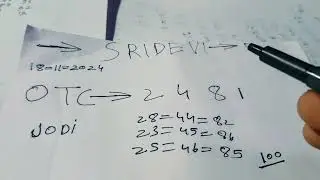 → SRIDEVI →
18=11=2024
OTC → 2 4 8 1
JODI
28=44=82
23=45=86
25=46=85
100